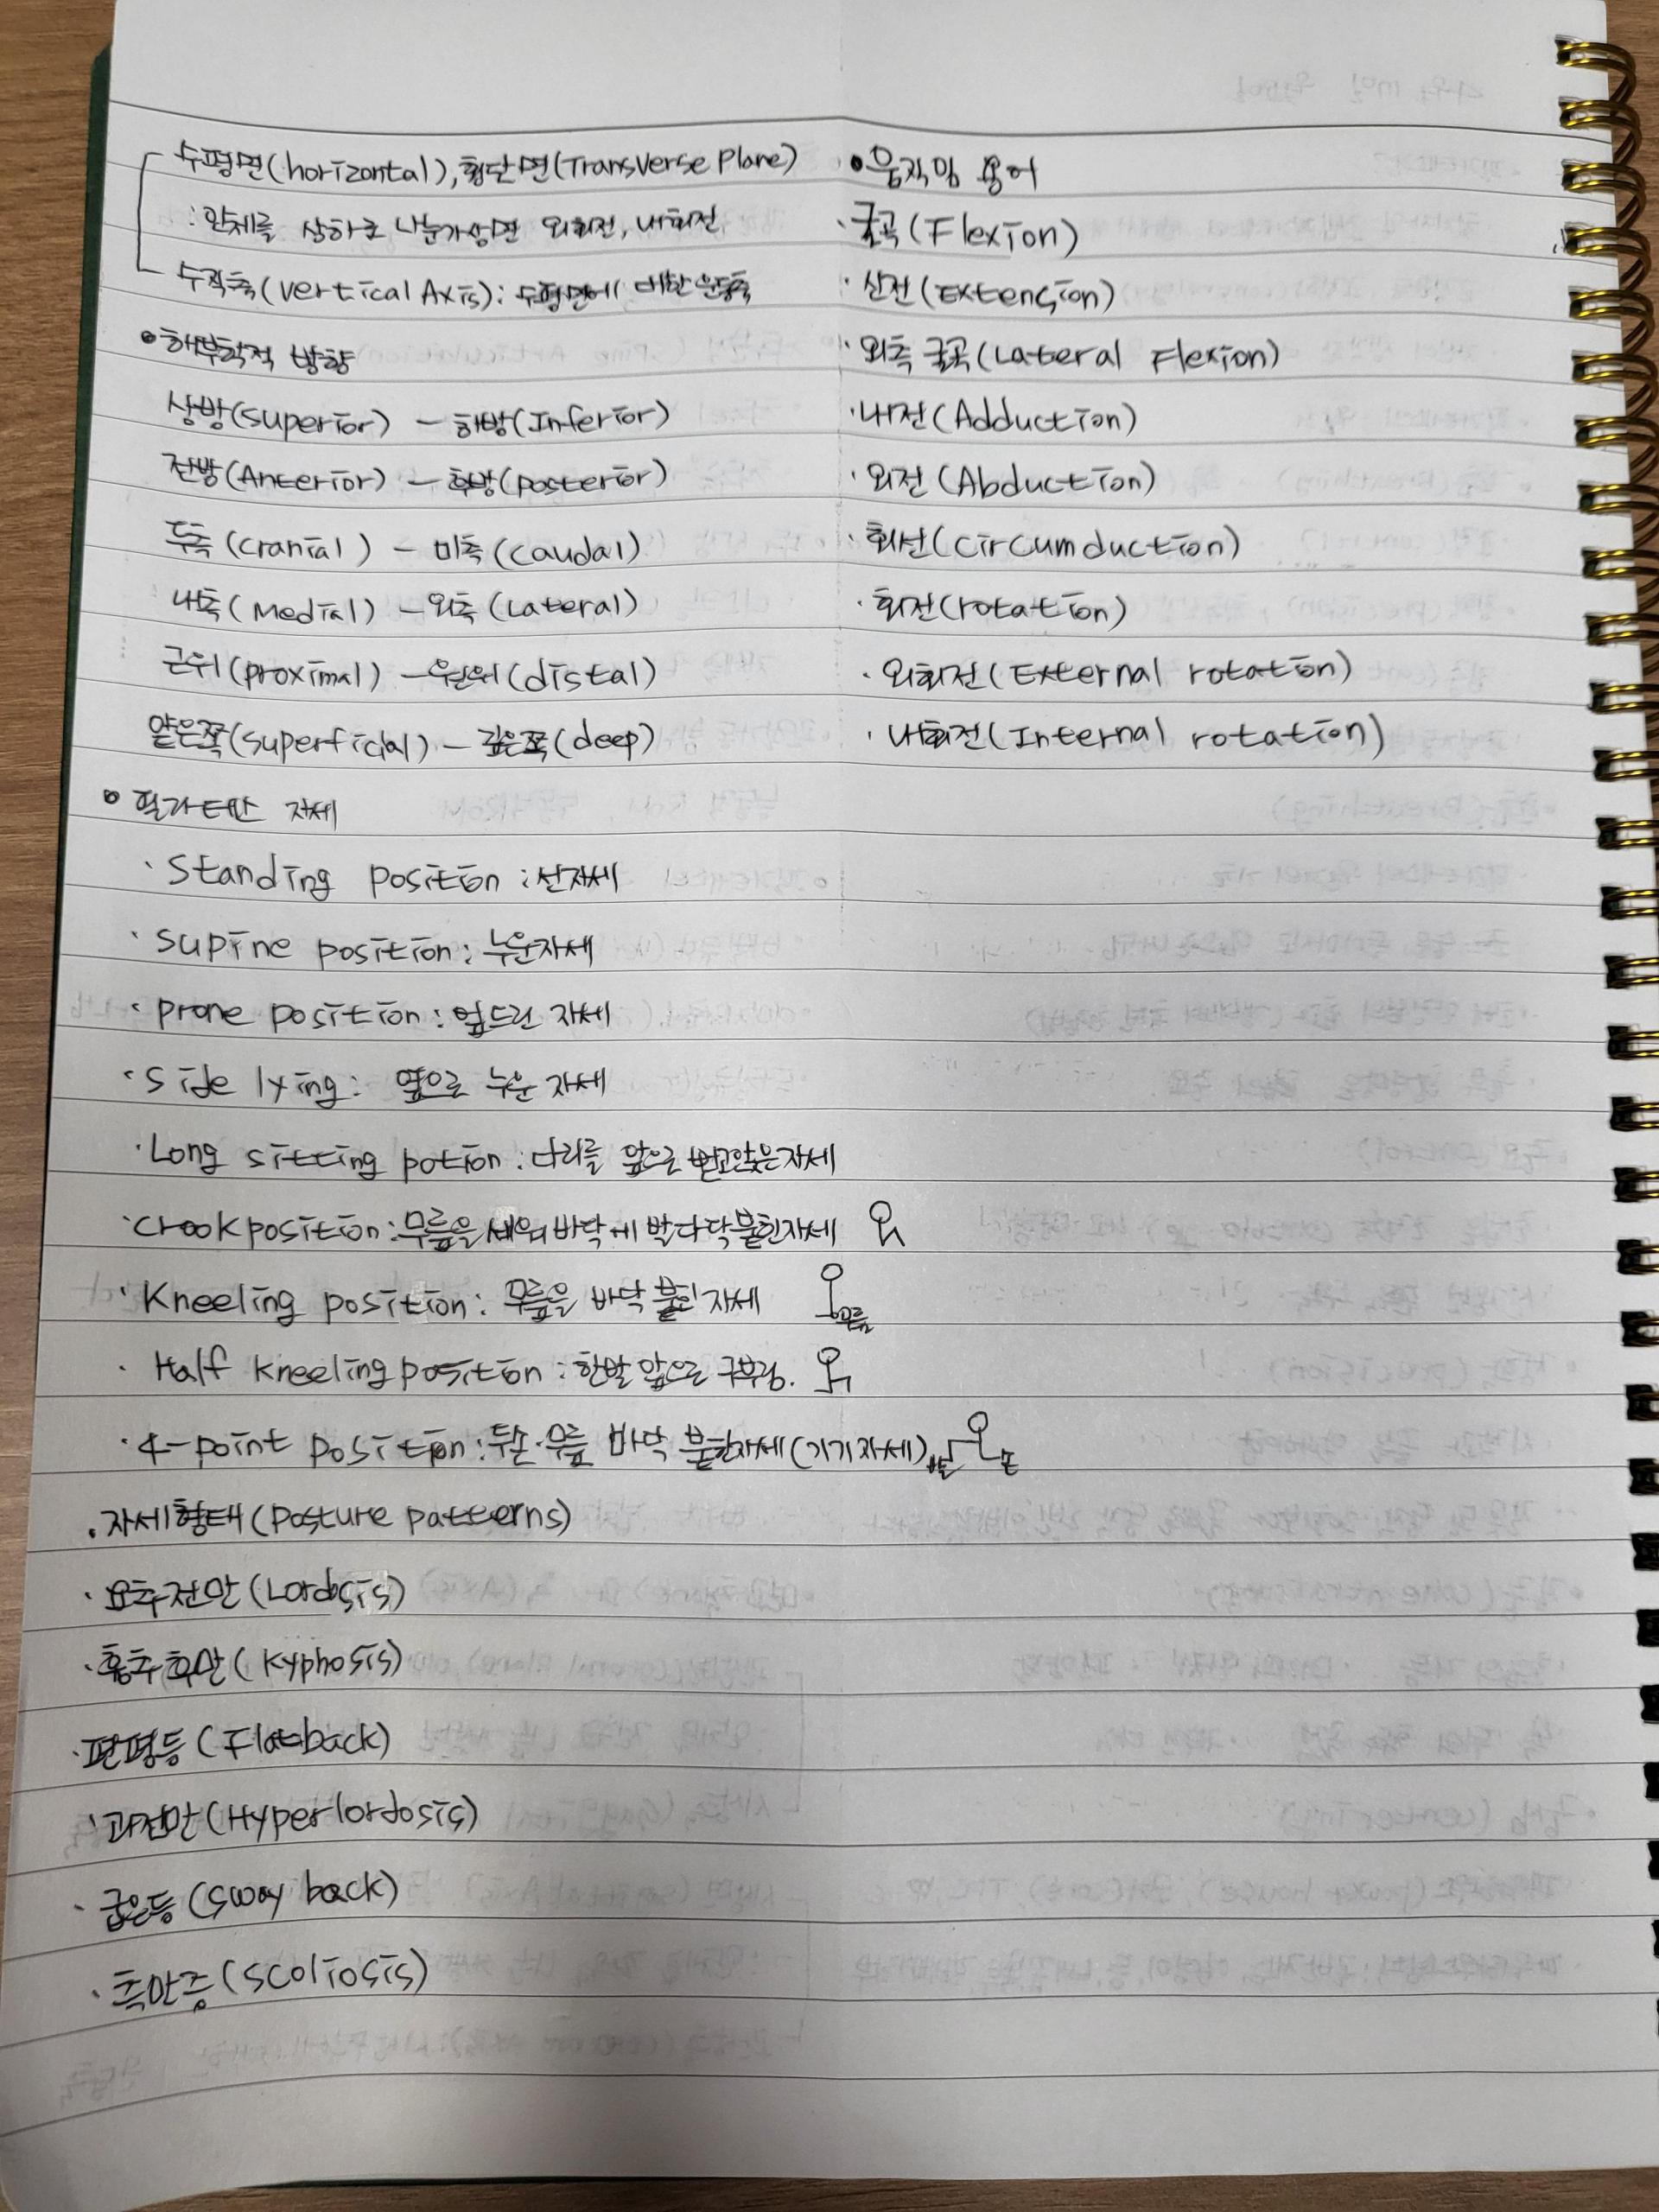 수평면(horizontal), 횡단면(Transverse Plane)
: 인체를 상하로 나눈가상면 외회전, 내회전
수직축(vertical Axis): 수평면에 대한운동축
• 해부학적 방향
상방(superior) - 하방(Inferior)
전방(Anterior) - 후방(posterior)
두측(cranial) - 미측(caudal)
내측(Medial) - 외측(Lateral)
근위(proximal) - 원위(distal)
얕은쪽(superficial) - 깊은쪽(deep)
• 자세
· Standing position : 선자세
· Supine position : 누운자세
· Prone position : 엎드린 자세
· Side lying : 옆으로 누운 자세
· Long sitting potion : 다리를 앞으로 뻗고앉은자세
· Crook position : 무릎을 세워 바닥에 발바닥붙힌자세
· Kneeling position : 무릎을 바닥 붙힌자세
무릎
· Half kneeling position : 한발 앞으로 구부림.
· 4-point position : 두손·무릎 바닥 붙힌자세(기기자세)
발 손
· 자세형태(Posture patterns)
· 요추전만(Lordosis)
· 흉추후만(Kyphosis)
· 편평등(Flatback)
· 과전만(Hyperlordosis)
· 굽은등(Sway back)
· 측만증(Scoliosis)
• 움직임 용어
· 굴곡(Flexion)
· 신전(Extension)
· 외측 굴곡(Lateral Flexion)
· 내전(Adduction)
· 외전(Abduction)
· 회선(Circumduction)
· 회전(rotation)
· 외회전(External rotation)
· 내회전(Internal rotation)